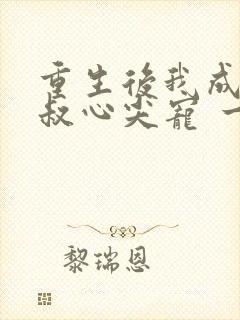 重生後我成
叔心尖寵
黎瑞恩